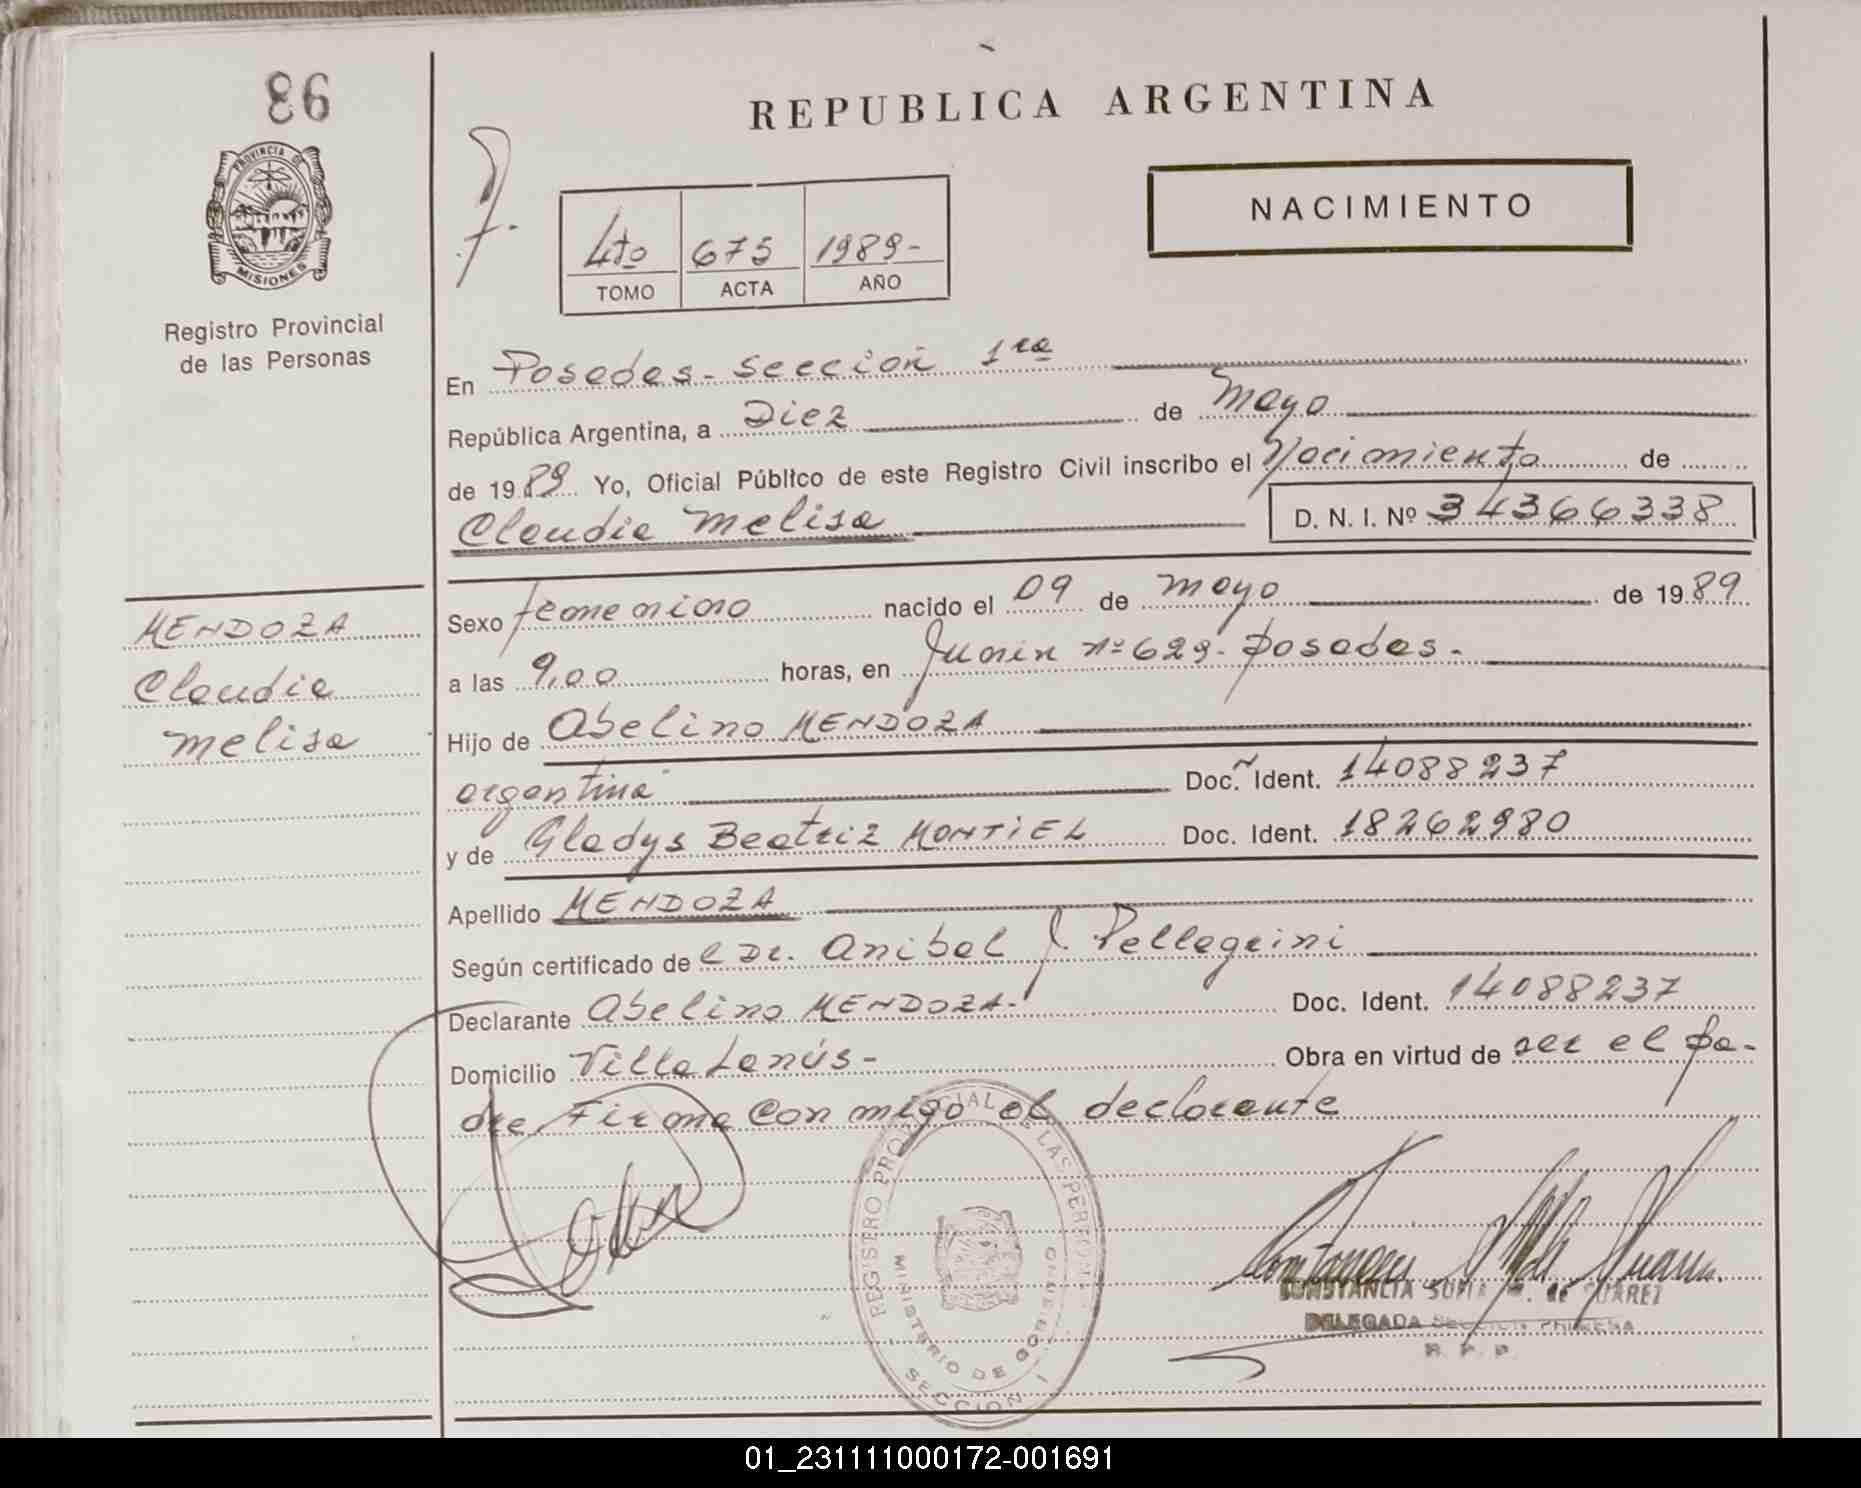 98
REPUBLICA ARGENTINA
PROVINCIA DE
MISIONES
Registro Provincial
de las Personas
NACIMIENTO
4to 675 1989-
TOMO ACTA AÑO
En Posadas - Sección 1ra
República Argentina, a Diez de Mayo
de 1989 Yo, Oficial Público de este Registro Civil inscribo el Nacimiento de
Claudia Melisa D. N. I. Nº 34366338
MENDOZA
Claudia
Melisa
Sexo femenino nacido el 09 de mayo de 1989
a las 9,00 horas, en Junin nº 629 - Posadas -
Hijo de Abelino MENDOZA
argentina Doc. Ident. 14088237
y de Gladys Beatriz MONTiEL Doc. Ident. 18262980
Apellido MENDOZA
Según certificado de el Dr. Anibal J. Pellegrini
Declarante Abelino MENDOZA - Doc. Ident. 14088237
Domicilio Villa Lanús - Obra en virtud de ser el pa-
dre, Firma conmigo el declarante
REGISTRO PROVINCIAL DE LAS PERSONAS
MINISTERIO DE GOBIERNO
SECCION 1
CONSTANCIA SOFIA de SUAREZ
DELEGADA SECCION PRIMERA
R. P. P.
01_231111000172-001691